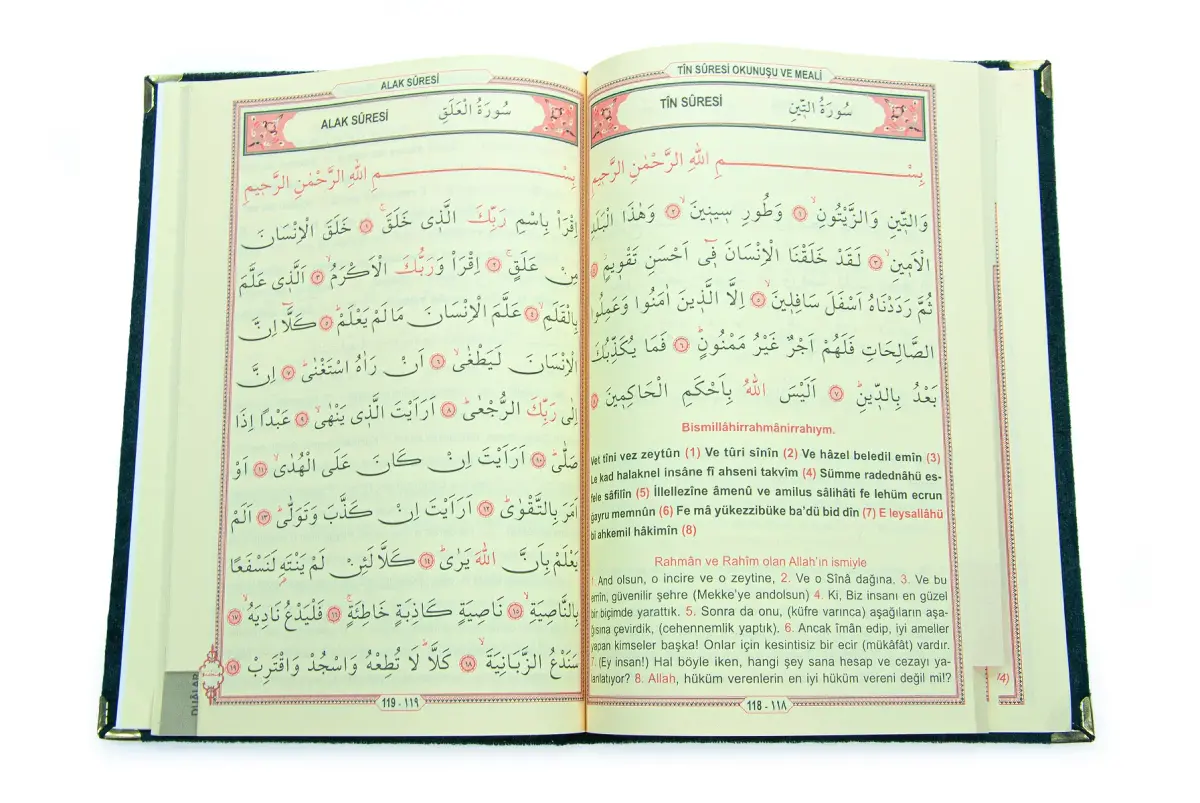 TÎN SÛRESİ OKUNUŞU VE MEALİ
TÎN SÛRESİ سُورَةُ التّ۪ينِ
بِسْمِ اللّٰهِ الرَّحْمٰنِ الرَّح۪يمِ
وَالتّ۪ينِ وَالزَّيْتُونِۙ ﴿١﴾ وَطُورِ س۪ين۪ينَۙ ﴿٢﴾ وَهٰذَا الْبَلَدِ
الْاَم۪ينِۙ ﴿٣﴾ لَقَدْ خَلَقْنَا الْاِنْسَانَ ف۪ٓي اَحْسَنِ تَقْو۪يمٍۘ ﴿٤﴾
ثُمَّ رَدَدْنَاهُ اَسْفَلَ سَافِل۪ينَۙ ﴿٥﴾ اِلَّا الَّذ۪ينَ اٰمَنُوا وَعَمِلُوا
الصَّالِحَاتِ فَلَهُمْ اَجْرٌ غَيْرُ مَمْنُونٍۜ ﴿٦﴾ فَمَا يُكَذِّبُكَ
بَعْدُ بِالدّ۪ينِۜ ﴿٧﴾ اَلَيْسَ اللّٰهُ بِاَحْكَمِ الْحَاكِم۪ينَ ﴿٨﴾
Bismillâhirrahmânirrahıym.
Vet tîni vez zeytûn (1) Ve tûri sînîn (2) Ve hâzel beledil emîn (3)
Le kad halaknel insâne fî ahseni takvîm (4) Sümme radednâhü es-
fele sâfilîn (5) İllellezîne âmenû ve amilus sâlihâti fe lehüm ecrun
gayru memnûn (6) Fe mâ yükezzibüke ba'dü bid dîn (7) E leysallâhü
bi ahkemil hâkimîn (8)
Rahmân ve Rahîm olan Allah'ın ismiyle
1. And olsun, o incire ve o zeytine, 2. Ve o Sînâ dağına. 3. Ve bu
emîn, güvenilir şehre (Mekke'ye andolsun) 4. Ki, Biz insanı en güzel
bir biçimde yarattık. 5. Sonra da onu, (küfre varınca) aşağıların aşa-
ğısına çevirdik, (cehennemlik yaptık). 6. Ancak îmân edip, iyi ameller
yapan kimseler başka! Onlar için kesintisiz bir ecir (mükâfât) vardır.
7. (Ey insan!) Hal böyle iken, hangi şey sana hesap ve cezayı ya-
lanlatıyor? 8. Allah, hüküm verenlerin en iyi hüküm vereni değil mi!?
118 - ١١٨
ALAK SÛRESİ
ALAK SÛRESİ سُورَةُ الْعَلَقِ
بِسْمِ اللّٰهِ الرَّحْمٰنِ الرَّح۪يمِ
اِقْرَأْ بِاسْمِ رَبِّكَ الَّذ۪ي خَلَقَۚ ﴿١﴾ خَلَقَ الْاِنْسَانَ
مِنْ عَلَقٍۚ ﴿٢﴾ اِقْرَأْ وَرَبُّكَ الْاَكْرَمُۙ ﴿٣﴾ اَلَّذ۪ي عَلَّمَ
بِالْقَلَمِۙ ﴿٤﴾ عَلَّمَ الْاِنْسَانَ مَا لَمْ يَعْلَمْۜ ﴿٥﴾ كَلَّٓا اِنَّ
الْاِنْسَانَ لَيَطْغٰىۙ ﴿٦﴾ اَنْ رَاٰهُ اسْتَغْنٰىۜ ﴿٧﴾ اِنَّ
اِلٰى رَبِّكَ الرُّجْعٰىۜ ﴿٨﴾ اَرَاَيْتَ الَّذ۪ي يَنْهٰىۙ ﴿٩﴾ عَبْدًا اِذَا
صَلّٰىۜ ﴿١٠﴾ اَرَاَيْتَ اِنْ كَانَ عَلَى الْهُدٰىۙ ﴿١١﴾ اَوْ
اَمَرَ بِالتَّقْوٰىۜ ﴿١٢﴾ اَرَاَيْتَ اِنْ كَذَّبَ وَتَوَلّٰىۜ ﴿١٣﴾ اَلَمْ
يَعْلَمْ بِاَنَّ اللّٰهَ يَرٰىۜ ﴿١٤﴾ كَلَّا لَئِنْ لَمْ يَنْتَهِ لَنَسْفَعًا
بِالنَّاصِيَةِۙ ﴿١٥﴾ نَاصِيَةٍ كَاذِبَةٍ خَاطِئَةٍۚ ﴿١٦﴾ فَلْيَدْعُ نَادِيَهُۙ ﴿١٧﴾
سَنَدْعُ الزَّبَانِيَةَۙ ﴿١٨﴾ كَلَّاۜ لَا تُطِعْهُ وَاسْجُدْ وَاقْتَرِبْ ﴿١٩﴾
119 - ١١٩
DUÂLAR